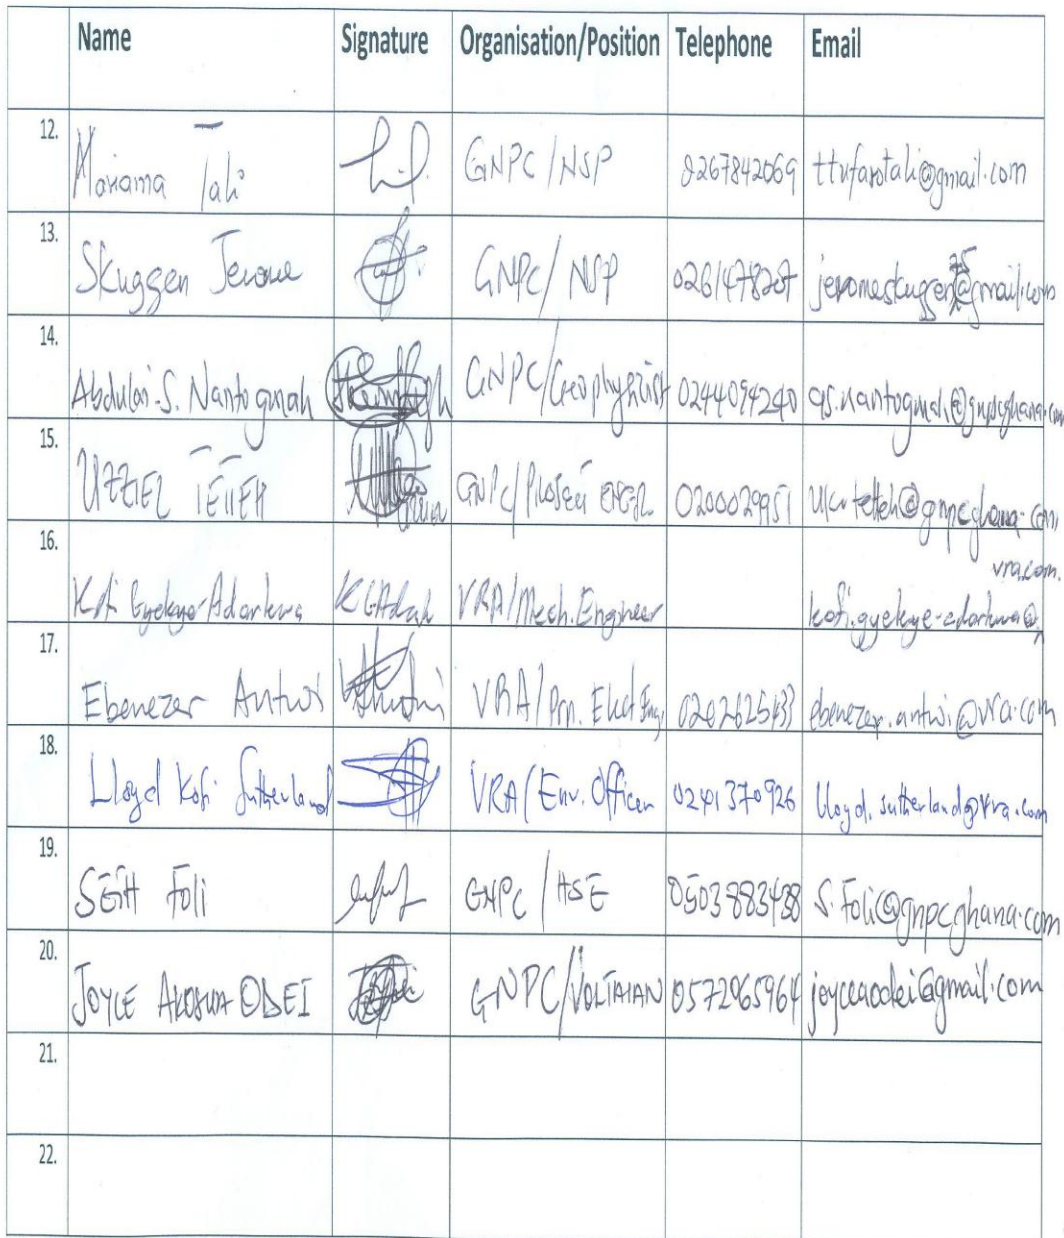 Name Signature Organisation/Position Telephone Email
12. Mariama Tali GNPC/NSP 0267842069 ttrfarotali@gmail.com
13. Skuggen Jerome GNPC/NSP 0261478207 jeromeskuggen75@gmail.com
14. Abdulai-S. Nantogmah GNPC/Geophysicist 0244094240 as.nantogmah@gnpcghana.com
15. UZZIEL TETTEH GNPC/ 0200029951 tetteh@gnpcghana.com
16. Kofi Gyekye-Adarkwa VRA/Mech. Engineer kofi.gyekye-adarkwa@vra.com.
17. Ebenezer Antwi VRA/Prn. Elect Eng. ebenezer.antwi@vra.com
18. Lloyd Kofi Sutherland VRA/Env. Officer 0241370926 lloyd.sutherland@vra.com
19. SETH Foli GNPC/HSE 0503883438 S.Foli@gnpcghana.com
20. JOYCE AKOSUA ODEI GNPC/VOLTAIAN 0572965964 joyceaodei@gmail.com
21.
22.